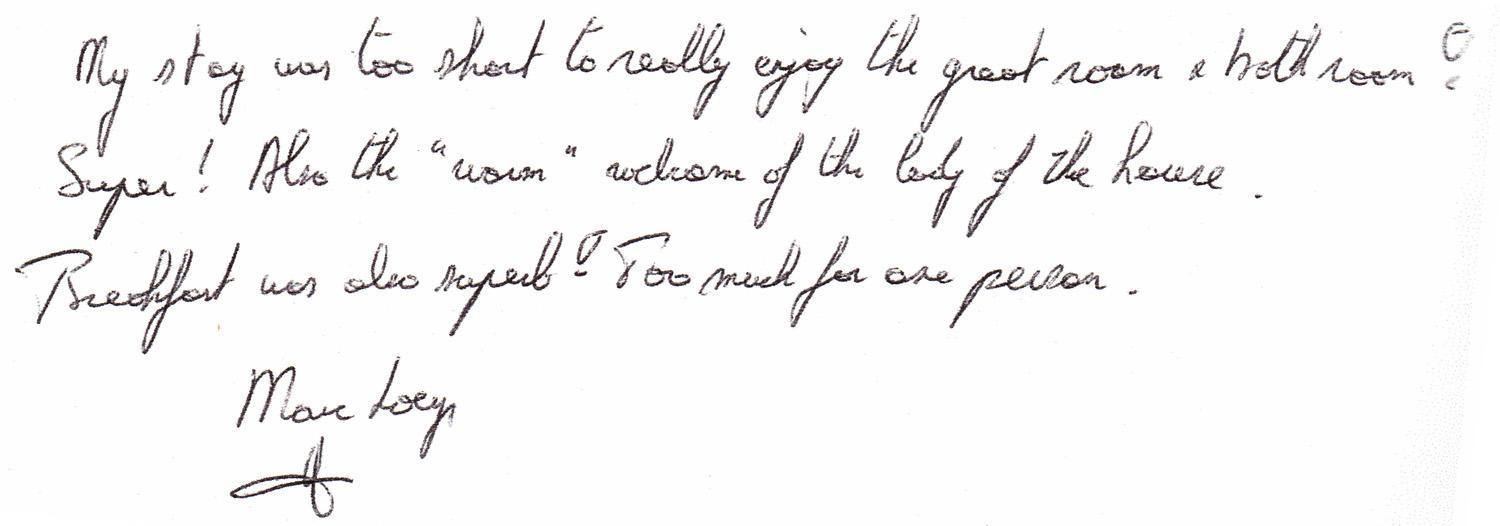 My stay was too short to really enjoy the great room & bathroom!
Super! Also the "warm" welcome of the lady of the house.
Breakfast was also superb! Too much for one person.
Marc Loeys